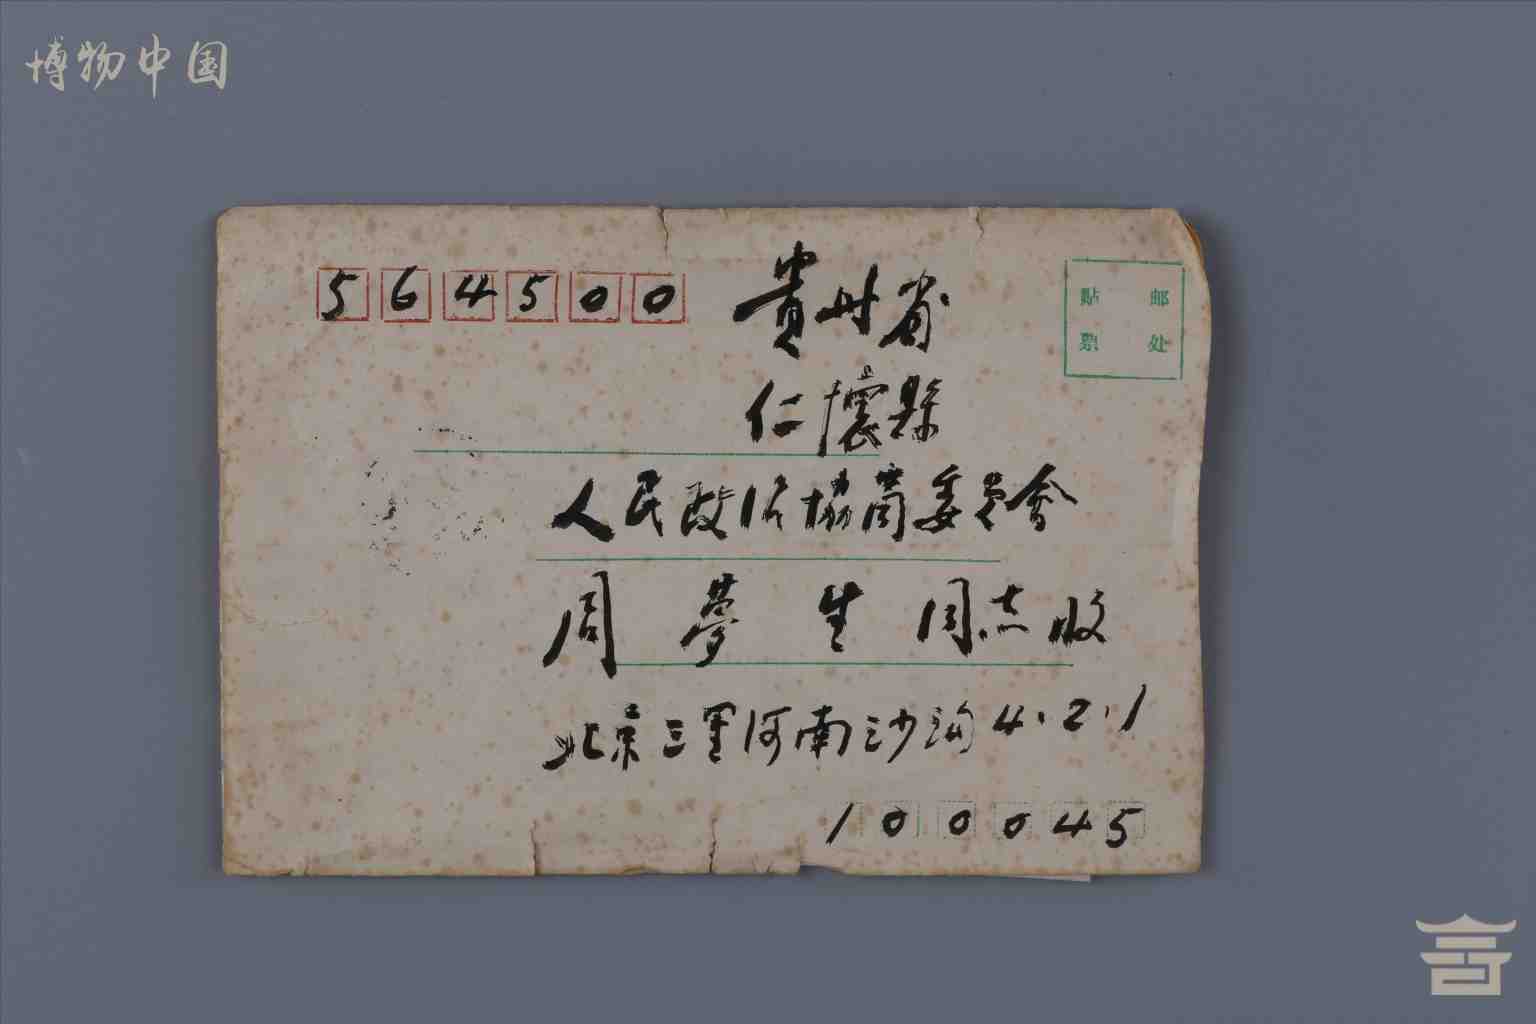 博物中国
564500
貴州省
贴邮
票处
仁懷縣
人民政治協商委員會
周夢生同志收
北京三里河南沙沟4.2.1
100045